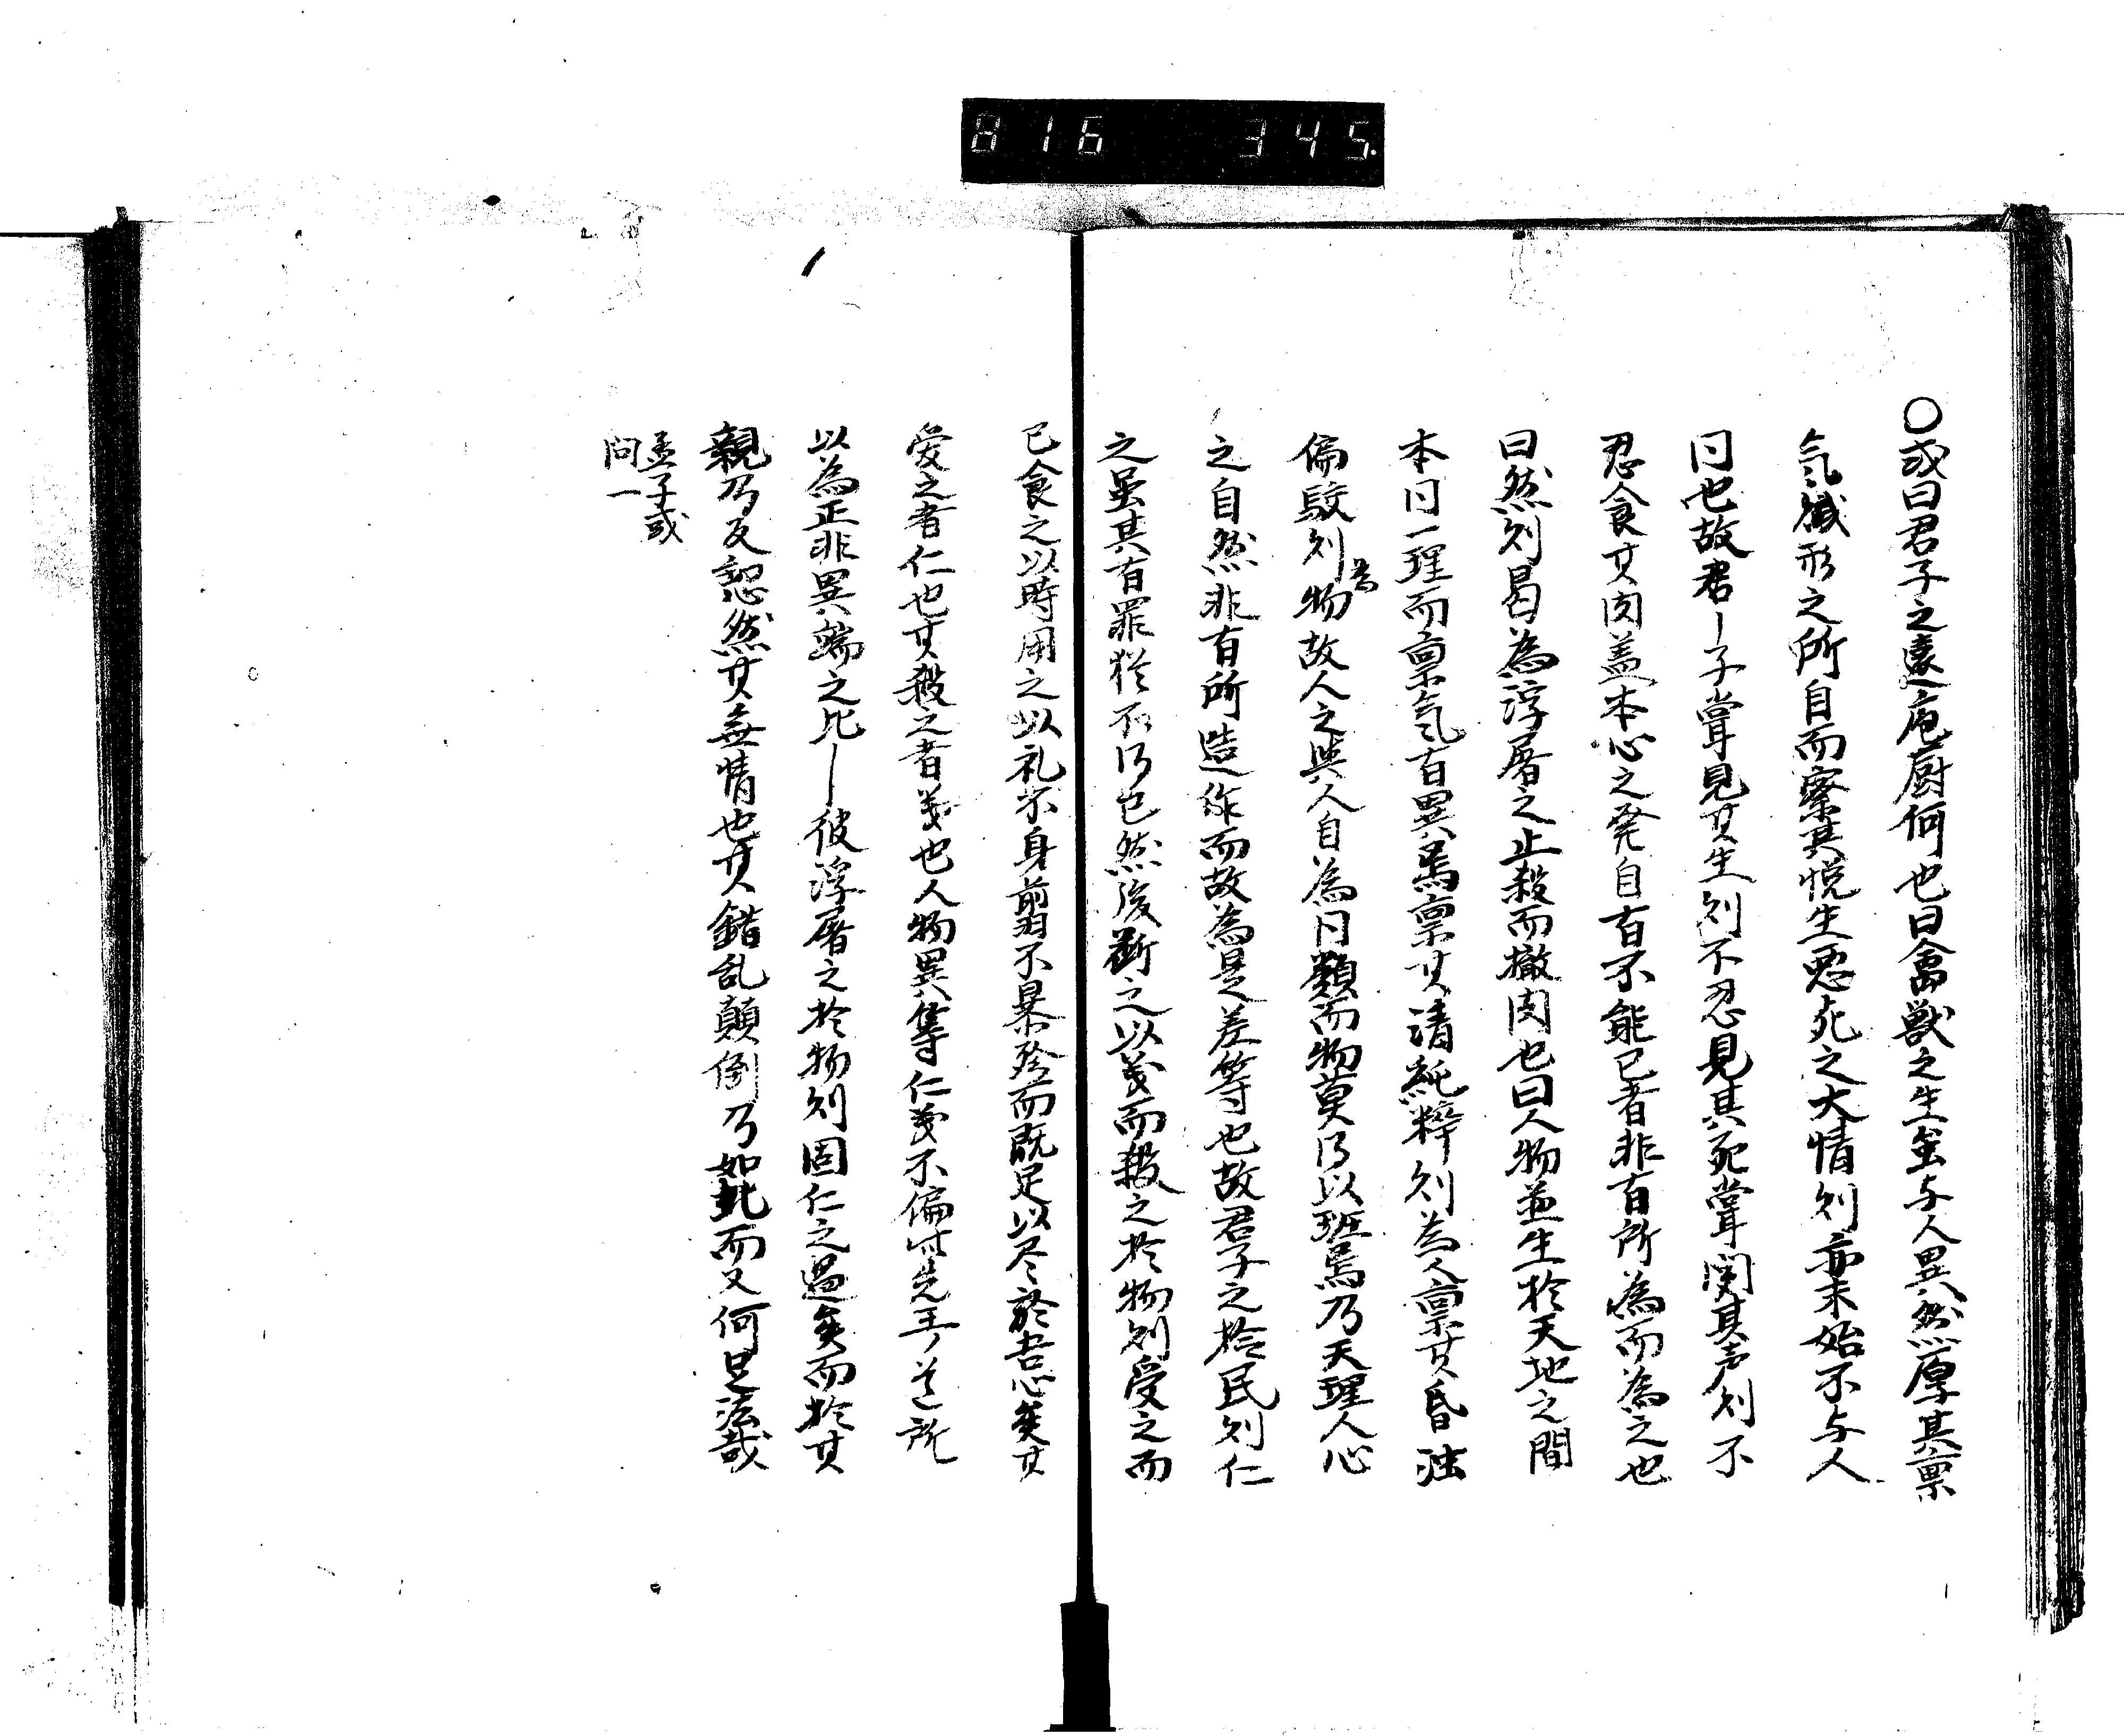 816 345.
○或曰君子之遠庖厨何也曰禽獣之生虽与人異然厚其禀
気賦形之所自而察其悦生悪死之大情則亦未始不与人
同也故君子甞見其生則不忍見其死甞聞其声則不
忍食其肉盖本心之発自有不能已者非有所為而為之也
曰然則曷為浮屠之止殺而撤肉也曰人物並生於天地之間
本同一理而禀気有異焉禀其清純粹則為人禀其昏浊
偏駁則為物故人之與人自為同類而物莫得以班焉乃天理人心
之自然非有所造作而故為是差等也故君子之於民則仁
之虽其有罪猶不得已然後断之以義而殺之於物則愛之而
已食之以時用之以礼不身翦不暴殄而既足以尽於吾心矣其
愛之者仁也其殺之者義也人物異等仁義不偏此先王之道所
以為正非異端之比彼浮屠之於物則固仁之過矣而於其
親乃反恝然其無情也其錯乱顛倒乃如此而又何足法哉
孟子或
問一